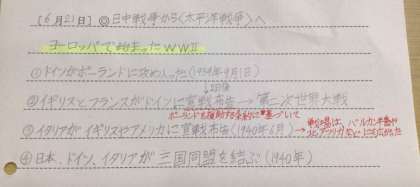 [6月21日] ◎日中戦争から〈太平洋戦争〉へ
ヨーロッパで始まったWWⅡ
①ドイツがポーランドに攻め入った(1939年9月1日)
↓2日後
②イギリスとフランスがドイツに宣戦布告→第二次世界大戦
ポーランドを援助する条約に基づいて
③イタリアがイギリスやアメリカに宣戦布告(1940年6月)→戦場は、バルカン半島や
北アフリカなどにも広がった
④日本、ドイツ、イタリアが三国同盟を結ぶ(1940年)